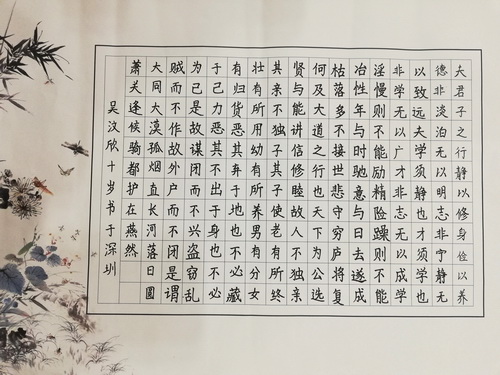 夫君子之行静以修身俭以养
德非淡泊无以明志非宁静无
以致远夫学须静也才须学也
非学无以广才非志无以成学
淫慢则不能励精险躁则不能
冶性年与时驰意与日去遂成
枯落多不接世悲守穷庐将复
何及大道之行也天下为公选
贤与能讲信修睦故人不独亲
其亲不独子其子使老有所终
壮有所用幼有所养男有分女
有归货恶其弃于地也不必藏
于己力恶其不出于身也不必
为己是故谋闭而不兴盗窃乱
贼而不作故外户而不闭是谓
大同大漠孤烟直长河落日圆
萧关逢候骑都护在燕然
吴汶欣十岁书于深圳